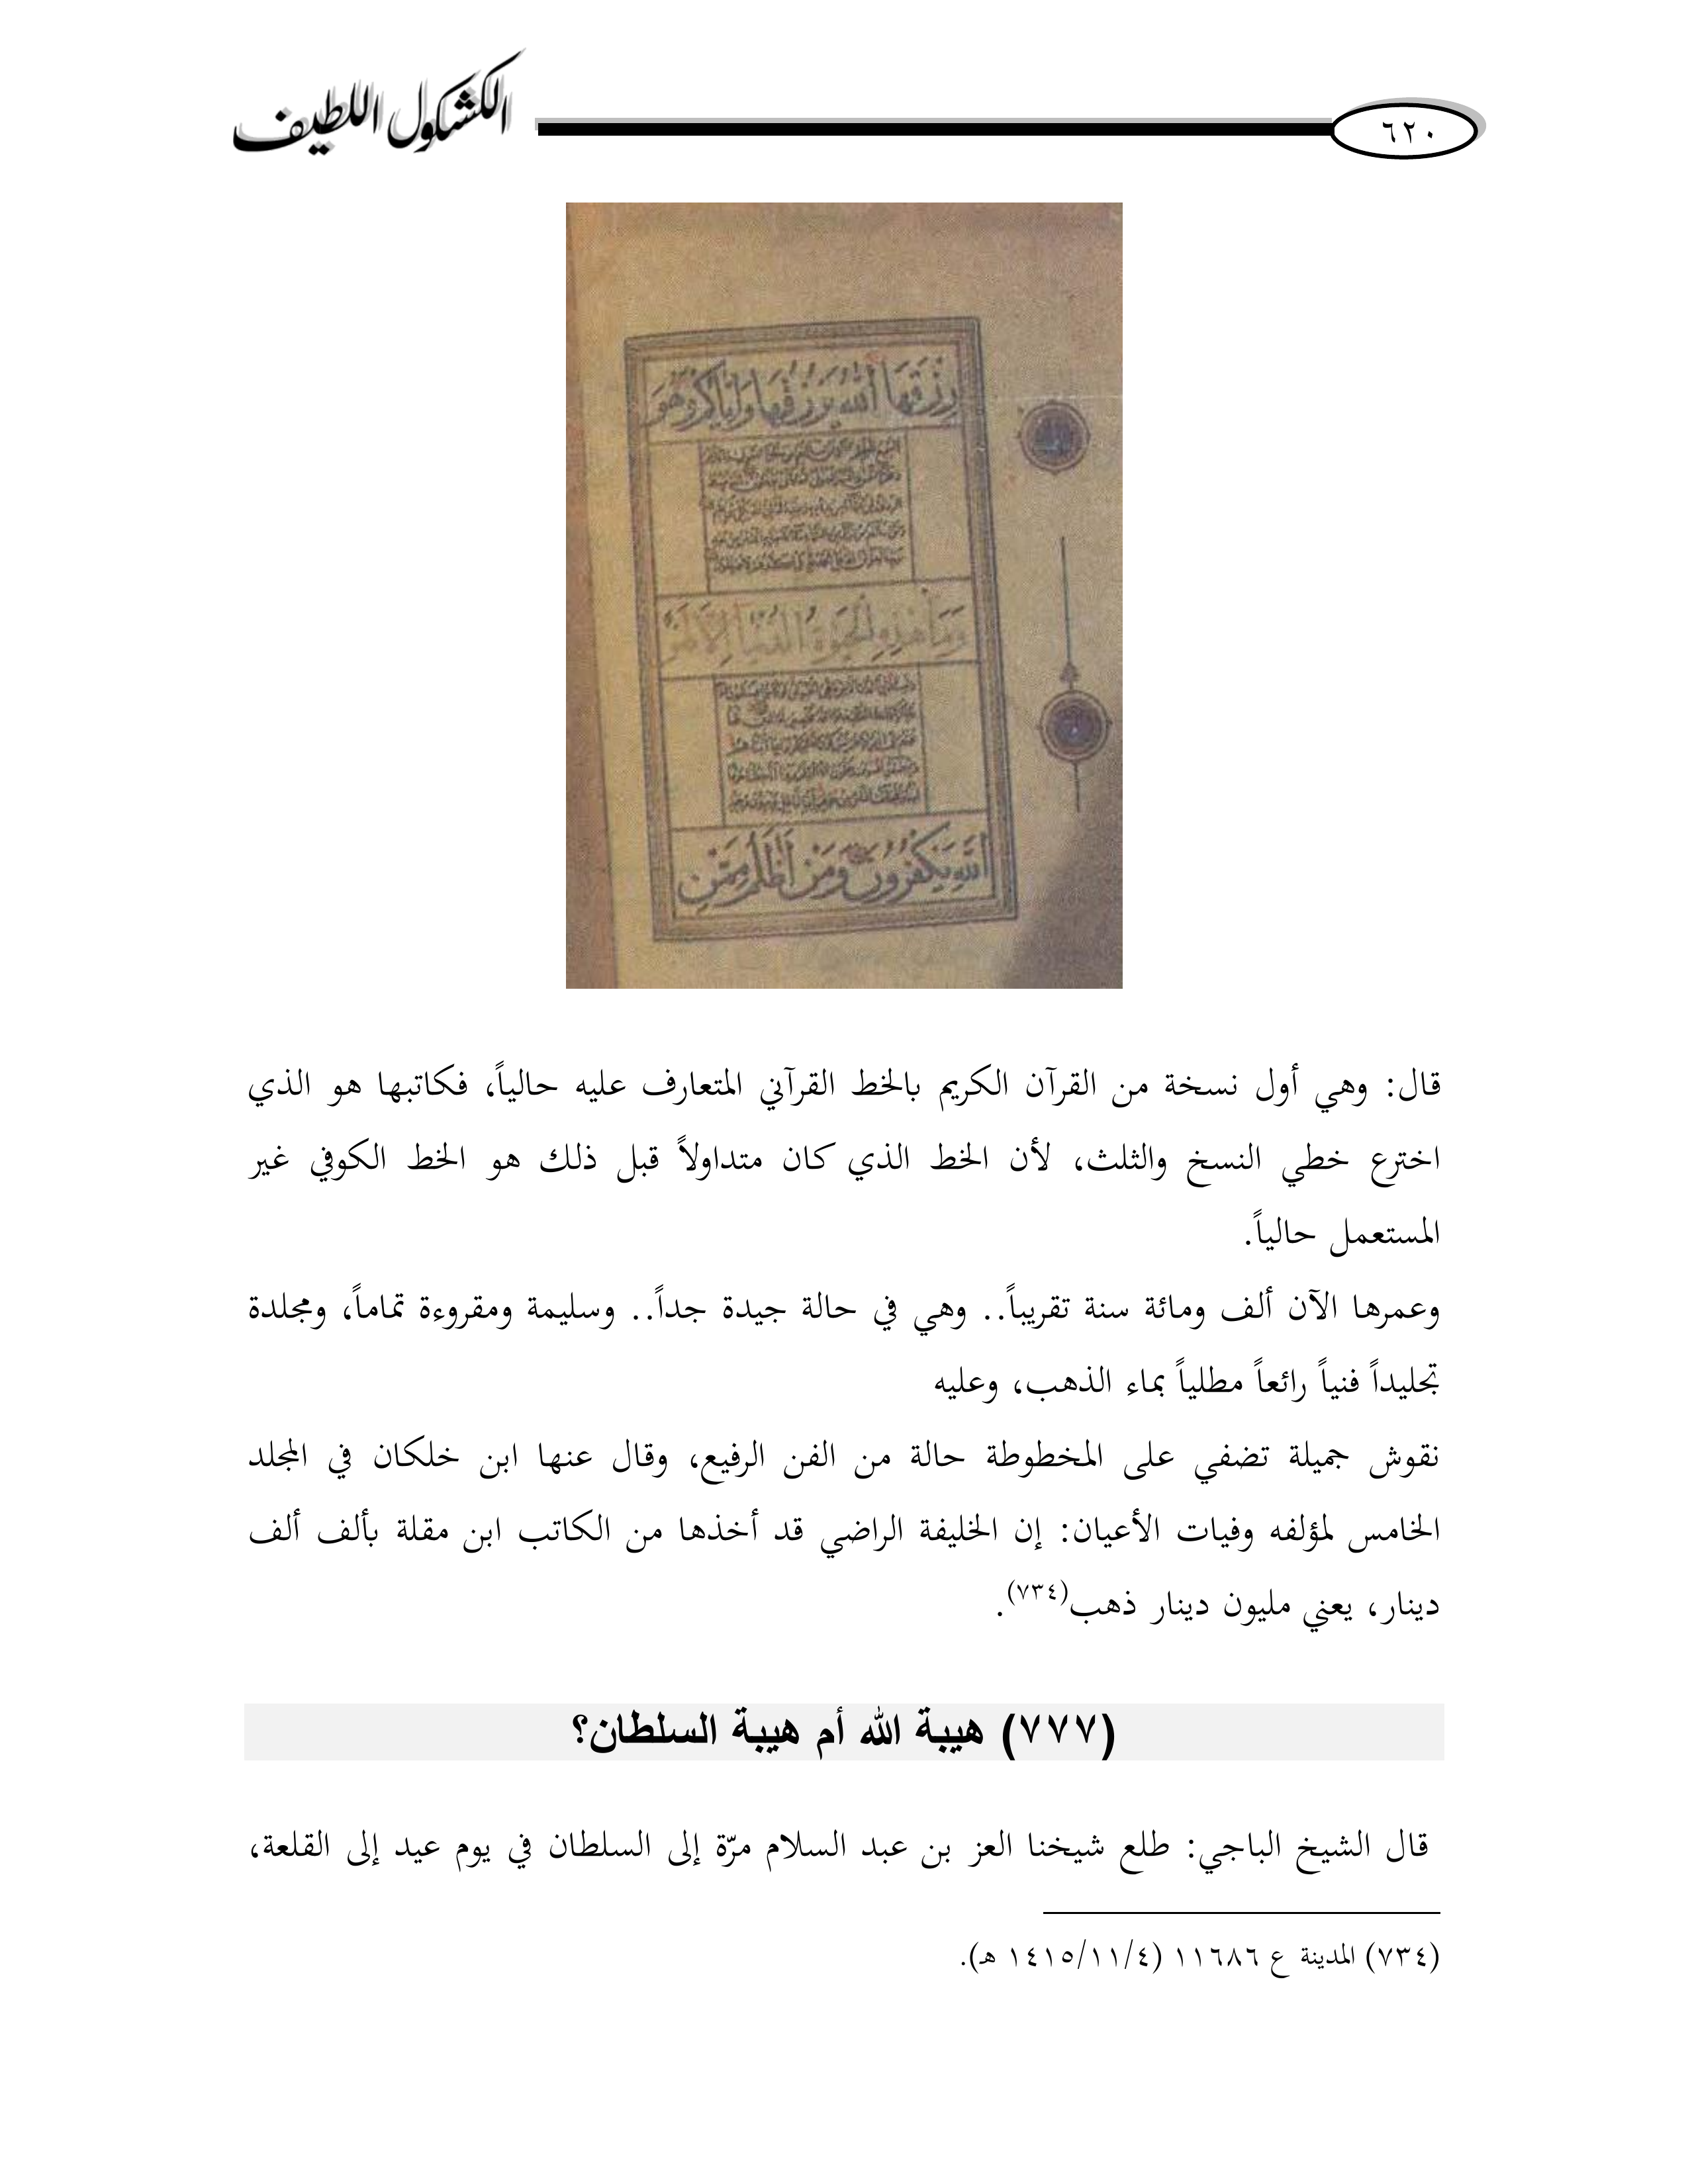 الكشكول اللطيف
٦٢٠
رِزْقَهَا اللَّهُ يَرْزُقُهَا وَإِيَّاكُمْ وَهُوَ
وَمَا هَذِهِ الْحَيَوةُ الدُّنْيَا إِلَّا لَهْوٌ
اللَّهِ يَكْفُرُونَ وَمَنْ أَظْلَمُ مِمَّنِ
قال: وهي أول نسخة من القرآن الكريم بالخط القرآني المتعارف عليه حالياً، فكاتبها هو الذي
اخترع خطي النسخ والثلث، لأن الخط الذي كان متداولاً قبل ذلك هو الخط الكوفي غير
المستعمل حالياً.
وعمرها الآن ألف ومائة سنة تقريباً.. وهي في حالة جيدة جداً.. وسليمة ومقروءة تماماً، ومجلدة
تجليداً فنياً رائعاً مطلياً بماء الذهب، وعليه
نقوش جميلة تضفي على المخطوطة حالة من الفن الرفيع، وقال عنها ابن خلكان في المجلد
الخامس لمؤلفه وفيات الأعيان: إن الخليفة الراضي قد أخذها من الكاتب ابن مقلة بألف ألف
دينار، يعني مليون دينار ذهب(٧٣٤).
(٧٧٧) هيبة الله أم هيبة السلطان؟
قال الشيخ الباجي: طلع شيخنا العز بن عبد السلام مرّة إلى السلطان في يوم عيد إلى القلعة،
(٧٣٤) المدينة ع ١١٦٨٦ (١٤١٥/١١/٤ هـ).